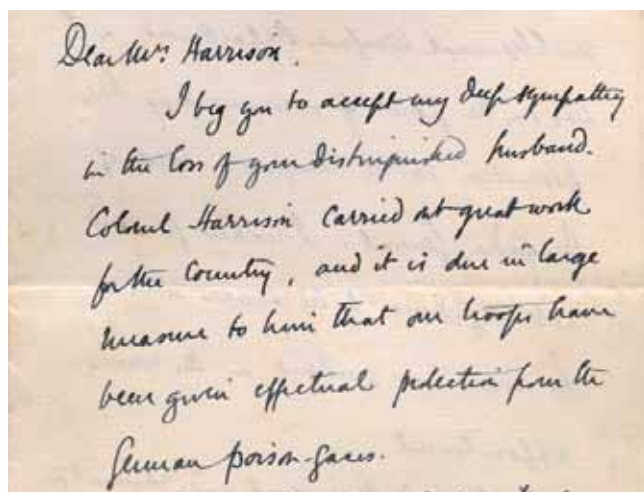 Dear Mrs Harrison.
I beg you to accept my deep sympathy
in the loss of your distinguished husband.
Colonel Harrison carried out great work
for the Country, and it is due in large
measure to him that our troops have
been given effectual protection from the
German poison-gases.